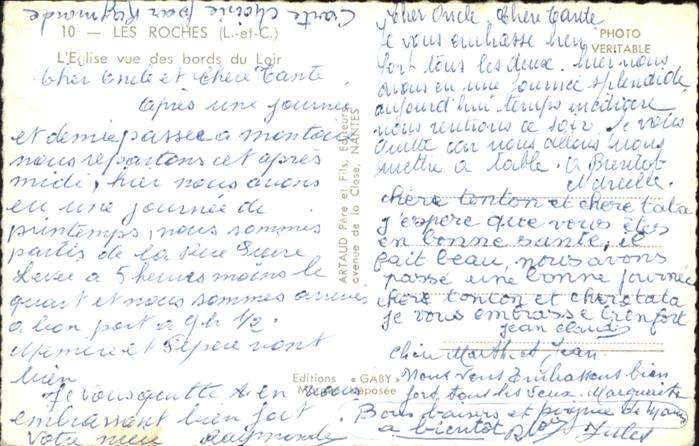 Carte choisie par Raymonde
10 — LES ROCHES (L.-et-C.)
L'Eglise vue des bords du Loir
Cher Oncle et Chère Tante
Après une journée
et demie passée a montoir
nous repartons cet après
midi, hier nous avons
eu une journée de
printemps, nous sommes
partis de la Rue Pierre
Levée a 5 heures moins le
quart et nous sommes arrivés
a bon port a 9 h 1/2.
Mémère et Pépère vont
bien
Je vous quitte en vous
embrassant bien fort.
Votre nièce Raymonde
ARTAUD Père et Fils, Editeurs
avenue de la Close, NANTES
Editions « GABY »
Marque déposée
PHOTO
VERITABLE
Cher Oncle, Chère Tante
Je vous embrasse bien
fort tous les deux. Hier nous
avons eu une journée splendide,
aujourd'hui temps médiocre
nous rentrons ce soir. Je vous
quitte car nous allons nous
mettre a table. A Bientôt
Marcelle.
chère tonton et chère tata
j'espère que vous êtes
en bonne santé, il
fait beau, nous avons
passé une bonne journée
chère tonton et chère tata
je vous embrasse très fort
jean claude
Chers Marthe et Jean.
Nous vous embrassons bien
fort tous les deux. Marguerite
Bons baisers et poignée de mains
a bientôt Jules